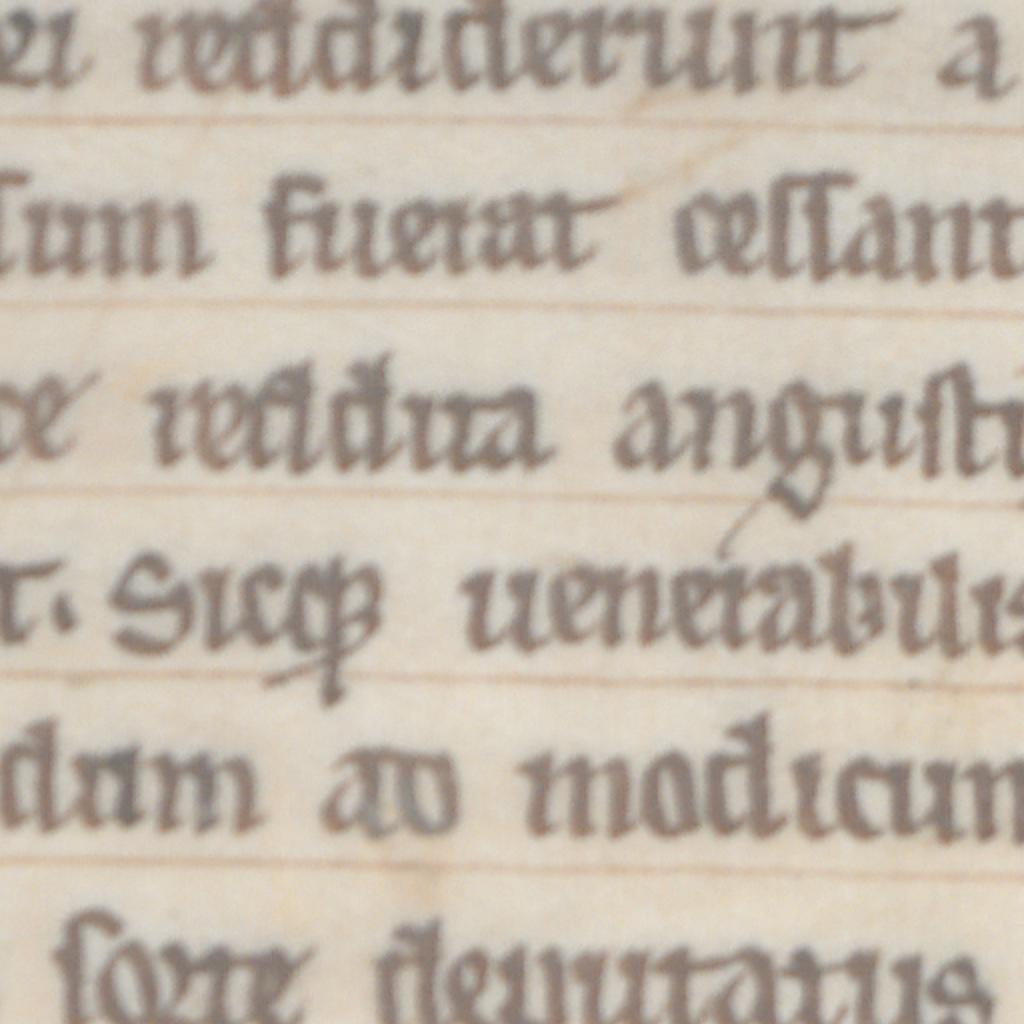 ei reddiderunt a
sum fuerat cessant
ce reddita angusti
t. Sicq; uenerabilis
dam ad modicum
sorte deputatus